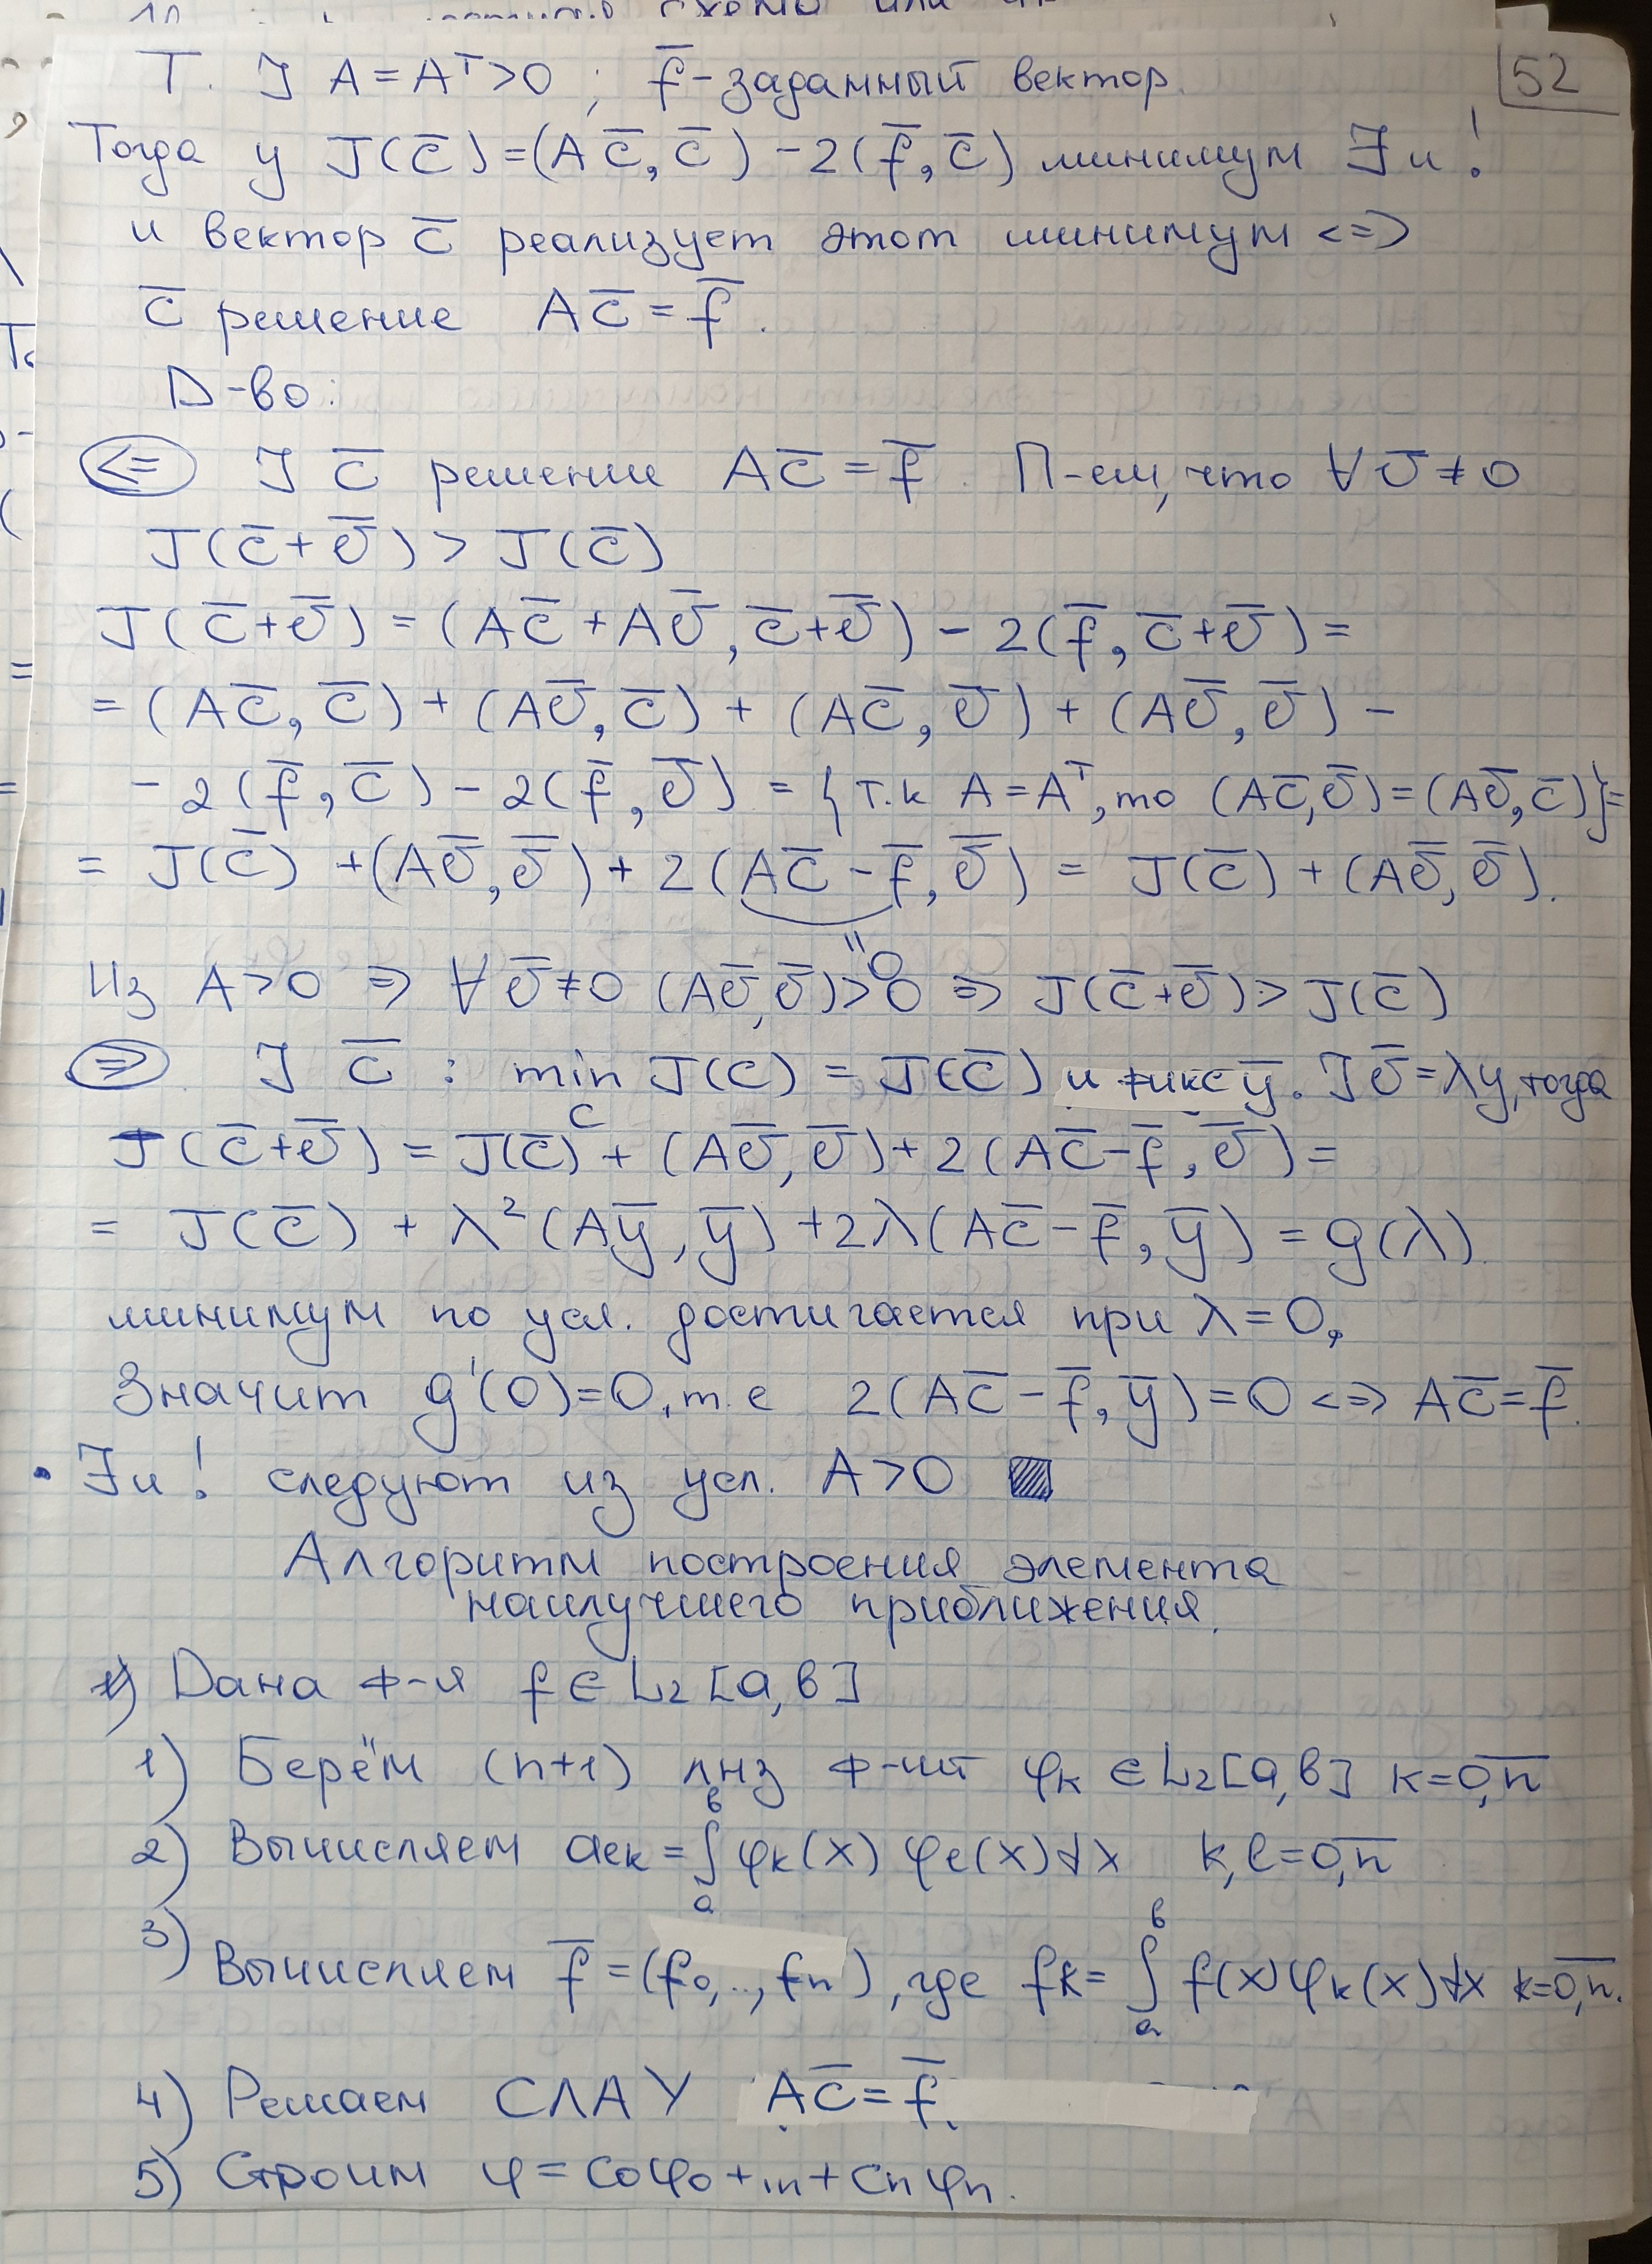 52
Т. ] A = Aᵀ > 0 ; f̅ - заданный вектор
Тогда у J(c̅) = (Ac̅, c̅) - 2(f̅, c̅) минимум ∃ и !
и вектор c̅ реализует этот минимум <=>
c̅ решение Ac̅ = f̅.
D-во:
<= ] c̅ решение Ac̅ = f̅. П-ем, что ∀ v̅ ≠ 0
J(c̅+v̅) > J(c̅)
J(c̅+v̅) = (Ac̅ + Av̅, c̅+v̅) - 2(f̅, c̅+v̅) =
= (Ac̅, c̅) + (Av̅, c̅) + (Ac̅, v̅) + (Av̅, v̅) -
- 2(f̅, c̅) - 2(f̅, v̅) = {т.к A = Aᵀ, то (Ac̅, v̅) = (Av̅, c̅)} =
= J(c̅) + (Av̅, v̅) + 2(Ac̅ - f̅, v̅) = J(c̅) + (Av̅, v̅).
" 0
Из A > 0 => ∀ v̅ ≠ 0 (Av̅, v̅) > 0 => J(c̅+v̅) > J(c̅)
=> ] c̅ : min J(c) = J(c̅) и фикс y̅. ] v̅ = λy, тогда
c
J(c̅+v̅) = J(c̅) + (Av̅, v̅) + 2(Ac̅ - f̅, v̅) =
= J(c̅) + λ²(Ay̅, y̅) + 2λ(Ac̅ - f̅, y̅) = g(λ)
минимум по усл. достигается при λ = 0,
Значит g'(0) = 0, т.е 2(Ac̅ - f̅, y̅) = 0 <=> Ac̅ = f̅.
• ∃ и ! следуют из усл. A > 0 ▨
Алгоритм построения элемента
наилучшего приближения.
Дана ф-я f ∈ L₂[a,b]
1) Берём (n+1) лнз ф-ий φₖ ∈ L₂[a,b] k = 0,n̅
2) Вычисляем aₑₖ = ∫ₐᵇ φₖ(x) φₑ(x)dx k, l = 0,n̅
3) Вычисляем f̅ = (f₀, .., fₙ), где fₖ = ∫ₐᵇ f(x)φₖ(x)dx k = 0,n̅.
4) Решаем СЛАУ Ac̅ = f̅.
5) Строим φ = c₀φ₀ + ... + cₙφₙ.